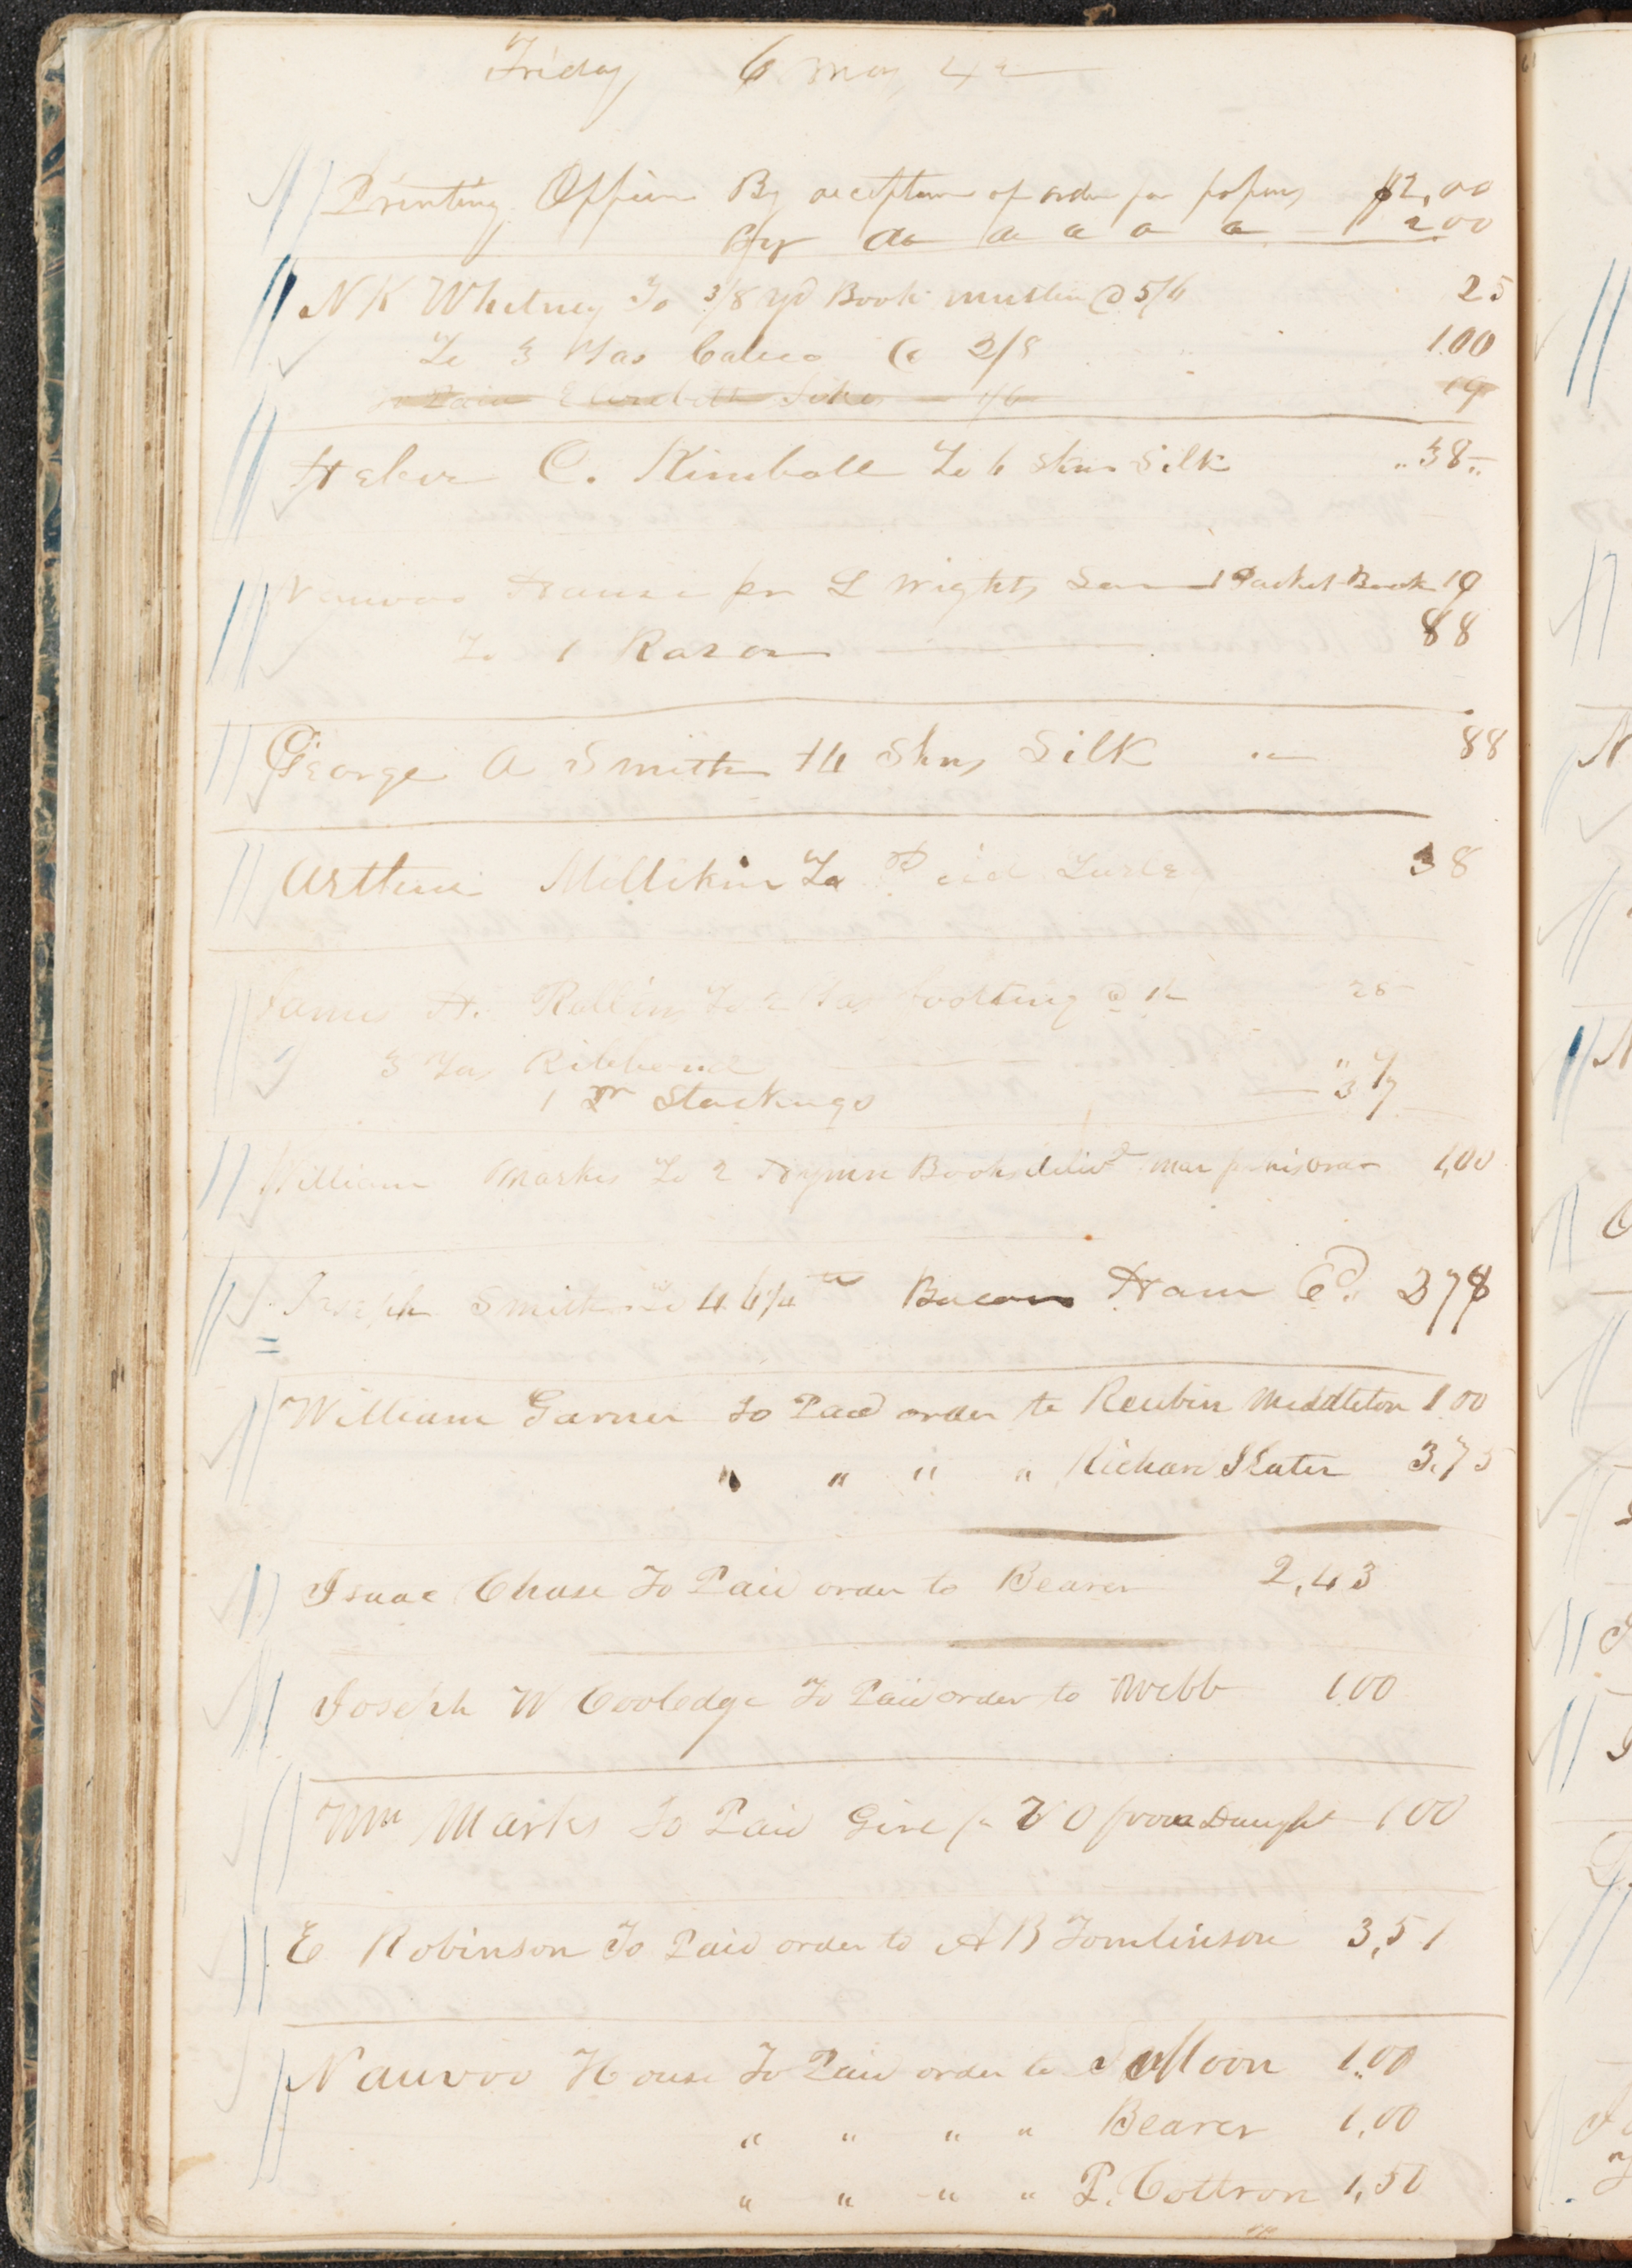 Friday 6 May 42
Printing Office By acceptance of order for papers $2,00
By do 2.00
N K Whitney To 3/8 yd Book Muslin @ 5/6 25
To 3 Yds Calico @ 2/8 1.00
To Paid Elizabeth Sikes 1/6 19
Heber C. Kimball To 6 Skns Silk 38
Nauvoo House pr L Wights Son 1 Pocket Book 19
To 1 Razor 88
George A Smith 14 Skns Silk 88
Arthur Millikin To Paid Turley 38
James H. Rollins To 2 Yds @ 1/ 25
3 Yds Ribbond
1 Pr Stockings
William Marks To 2 Hymn Books delivd 1,00
Joseph Smith Bacon Ham 6d. 278
William Garner To Paid order to Reubin Middleton 1.00
" " " " Richard Slater 3.75
Isaac Chase To Paid order to Bearer 2,43
Joseph W Cooledge To Paid order to Webb 1.00
Wm Marks To Paid 1 00
E Robinson To Paid order to A B Tomlinson 3,51
Nauvoo House To Paid order to Moon 1.00
" " " " Bearer 1,00
" " " " P. Cottron 1,50